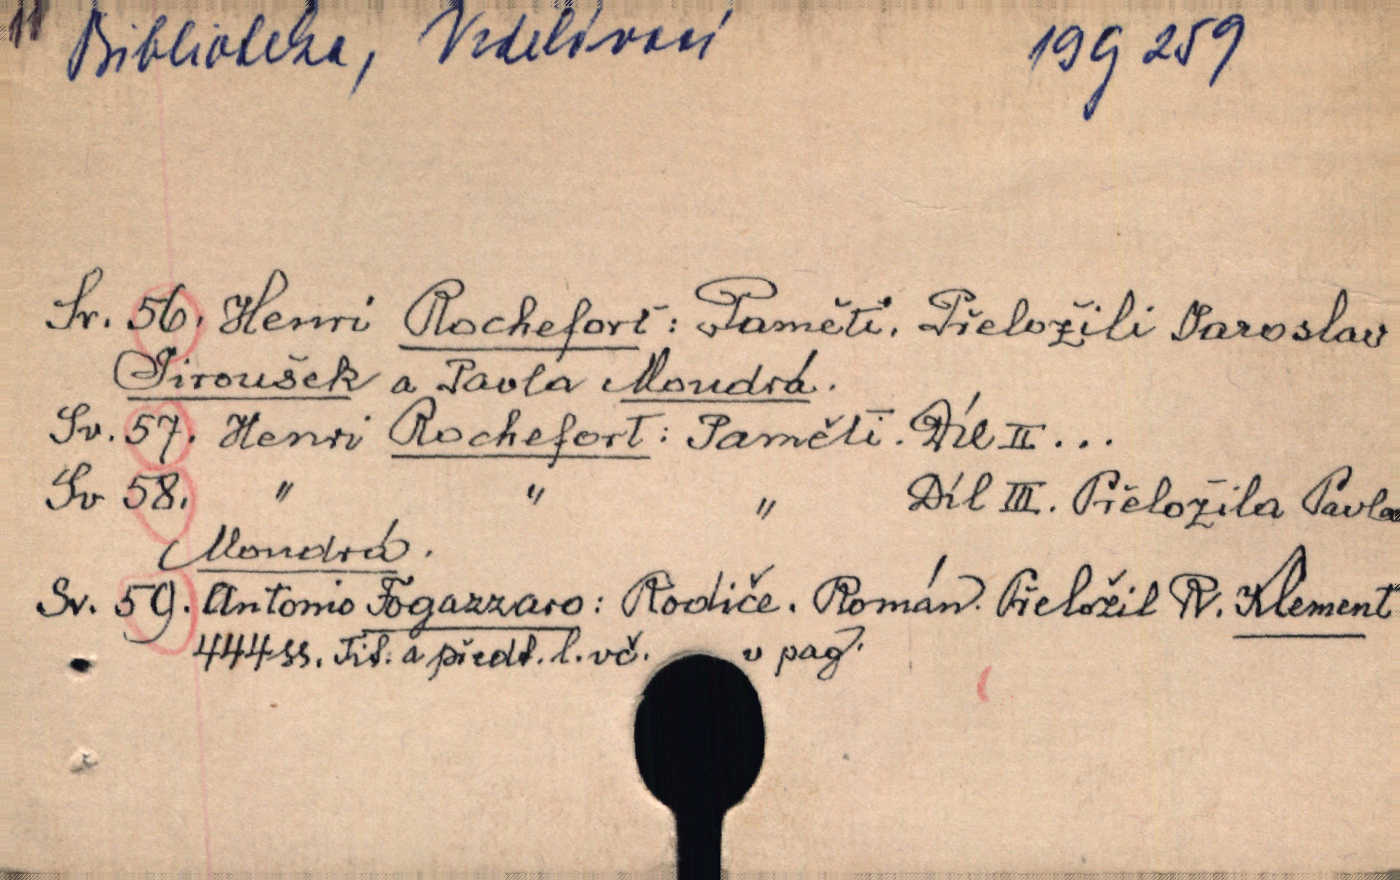 11 Biblioteka, Vzdelávací 19 G 259
Sv. 56. Henri Rochefort: Paměti. Přeložili Jaroslav
Jiroušek a Pavla Moudrá.
Sv. 57. Henri Rochefort: Paměti. Díl II...
Sv 58. " " " Díl III. Přeložila Pavla
Moudrá.
Sv. 59. Antonio Fogazzaro: Rodiče. Román. Přeložil R. Klement
444 ss. Tit. a předt. l. vč. v pag.